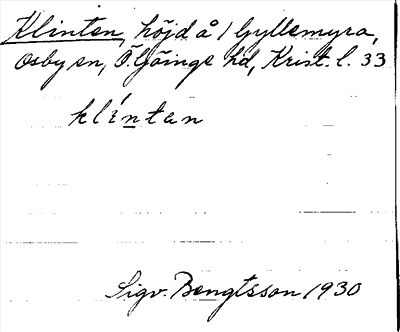 Klinten, höjd å 1 Gyllemyra,
Osby sn, Ö. Göinge hd, Krist. l. 33
klíntan
Sigv. Bengtsson 1930